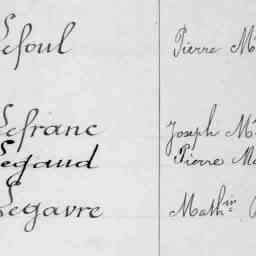 Lefoul Pierre M
Lefranc Joseph M
Legaud Pierre M
Legavre Math.in